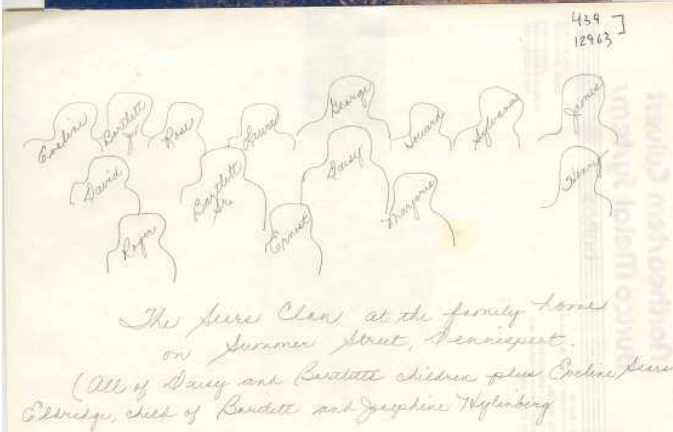 439
12963
Eveline Bartlett Jr Rose Laura George Howard Sylvanus James
David Bartlett Sr. Daisy Henry
Roger Ernest Marjorie
The Sears Clan at the family home
on Summer Street, Dennisport.
(All of Daisy and Bartletts children plus Eveline Sears
Eldredge, child of Bartlett and Josephine